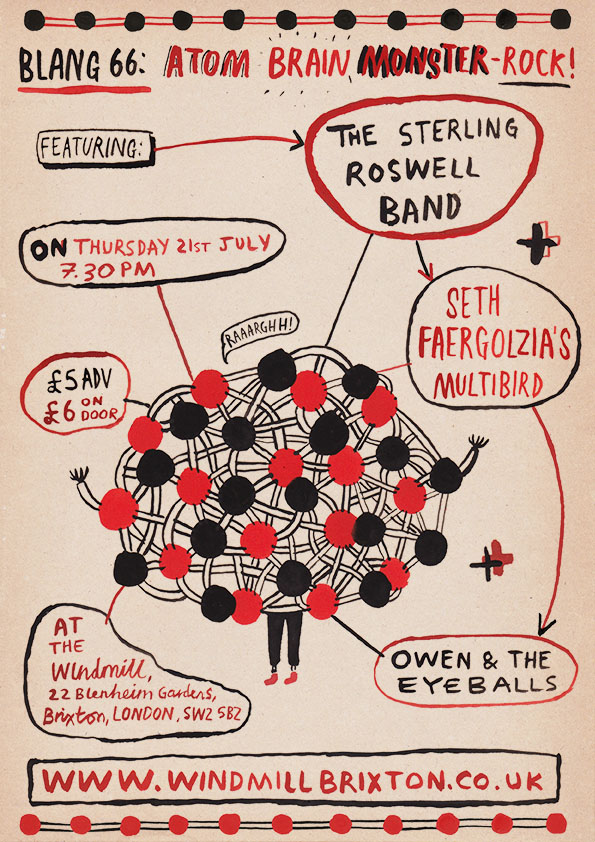 BLANG 66: ATOM BRAIN MONSTER-ROCK!
FEATURING:
THE STERLING
ROSWELL
BAND
ON THURSDAY 21ST JULY
7.30PM
SETH
FAERGOLZIA'S
MULTIBIRD
RAAARGHH!
£5 ADV
£6 ON
DOOR
OWEN & THE
EYEBALLS
AT
THE
Windmill,
22 Blenheim Gardens,
Brixton, LONDON, SW2 5BZ
WWW.WINDMILLBRIXTON.CO.UK